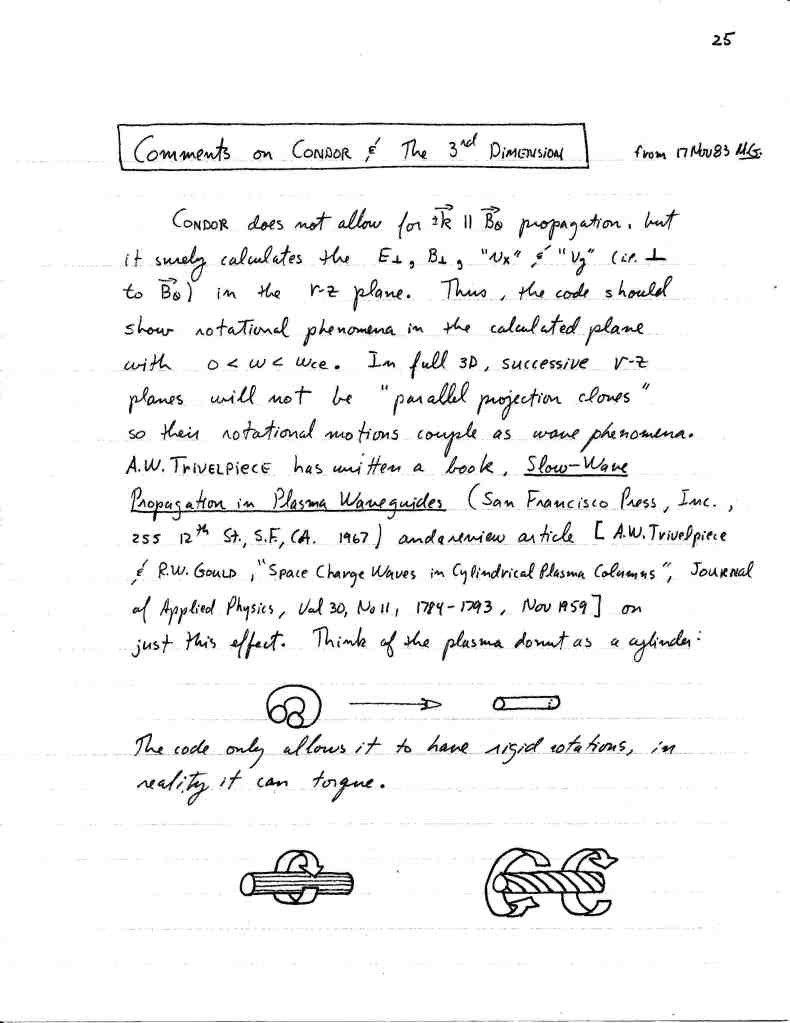 25
Comments on CONDOR & The 3rd DIMENSION from 17 Nov 83 M.G.
CONDOR does not allow for ±k⃗ || B⃗θ propagation, but
it surely calculates the E⊥, B⊥, "Vx" & "Vz" (i.e. ⊥
to B⃗θ) in the r-z plane. Thus, the code should
show rotational phenomena in the calculated plane
with 0 < ω < ωce. In full 3D, successive r-z
planes will not be "parallel projection clones"
so their rotational motions couple as wave phenomena.
A.W. TRIVELPIECE has written a book, Slow-Wave
Propagation in Plasma Waveguides (San Francisco Press, Inc.,
255 12th St., S.F., CA. 1967) and a review article [A.W. Trivelpiece
& R.W. GOULD, "Space Charge Waves in Cylindrical Plasma Columns", JOURNAL
of Applied Physics, Vol 30, No 11, 1784-1793, Nov 1959] on
just this effect. Think of the plasma donut as a cylinder:
The code only allows it to have rigid rotations, in
reality it can torque.